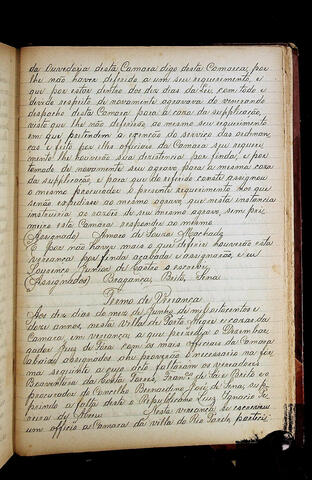 da Ouvedoria desta Camara digo desta Comarca, por
lhe não haver deferido a um seu requerimento, e
que por estar dentro dos dez dias da Lei, com todo o
devido respeito, de novamente agravava do venerando
despacho desta Camara para a caza da supplicação,
visto que lhe não deferiose ao mesmo seu requerimento
em que pretendem a izenção do serviço das ordenan
ças e feito por elles officiaes da Camara seu requeri
mento lhe houverão sua desistencia por finda, e por
tomado de novamente seu agravo para a mesma caza
da supplicação, e para que de referido conste assignou
o mesmo procurador o presente requerimento, nos que
senão expedisse ao mesmo agravo, que nesta instancia
instruiria as razões do seu mesmo agravo, sem pri
meiro esta Camara responder ao mesmo
(Assignado) Amaro de Souza Machado
E por não haver mais o que deferir houverão esta
vereança por finda, acabada e assignarão, e eu
Lourenço Junior de Castro a escrevi
(Assignados) Bragança, Brito, Senna
Termo de Vereança
Aos dez dias do mez de Junho de mil oitocentos e
doze annos, nesta Villa de Porto Alegre e cazas da
Camara, em vereança a que prezidia o Dezembar
gador Juiz de Fora com os mais officiaes da Camara
abaixo assignados aho provendo o necessario na for
ma seguinte a cujo acto faltarão os vereadores
Boaventura da Costa Torres, Franco de Sá e Brito e o
procurador do Concelho Bernardino José de Senna, sup
prindo a falta deste o Republicano Luiz Ignacio Pe
reira de Abreu Nesta vereança se escreveu
um officio a Camara da villa do Rio Pardo, partici